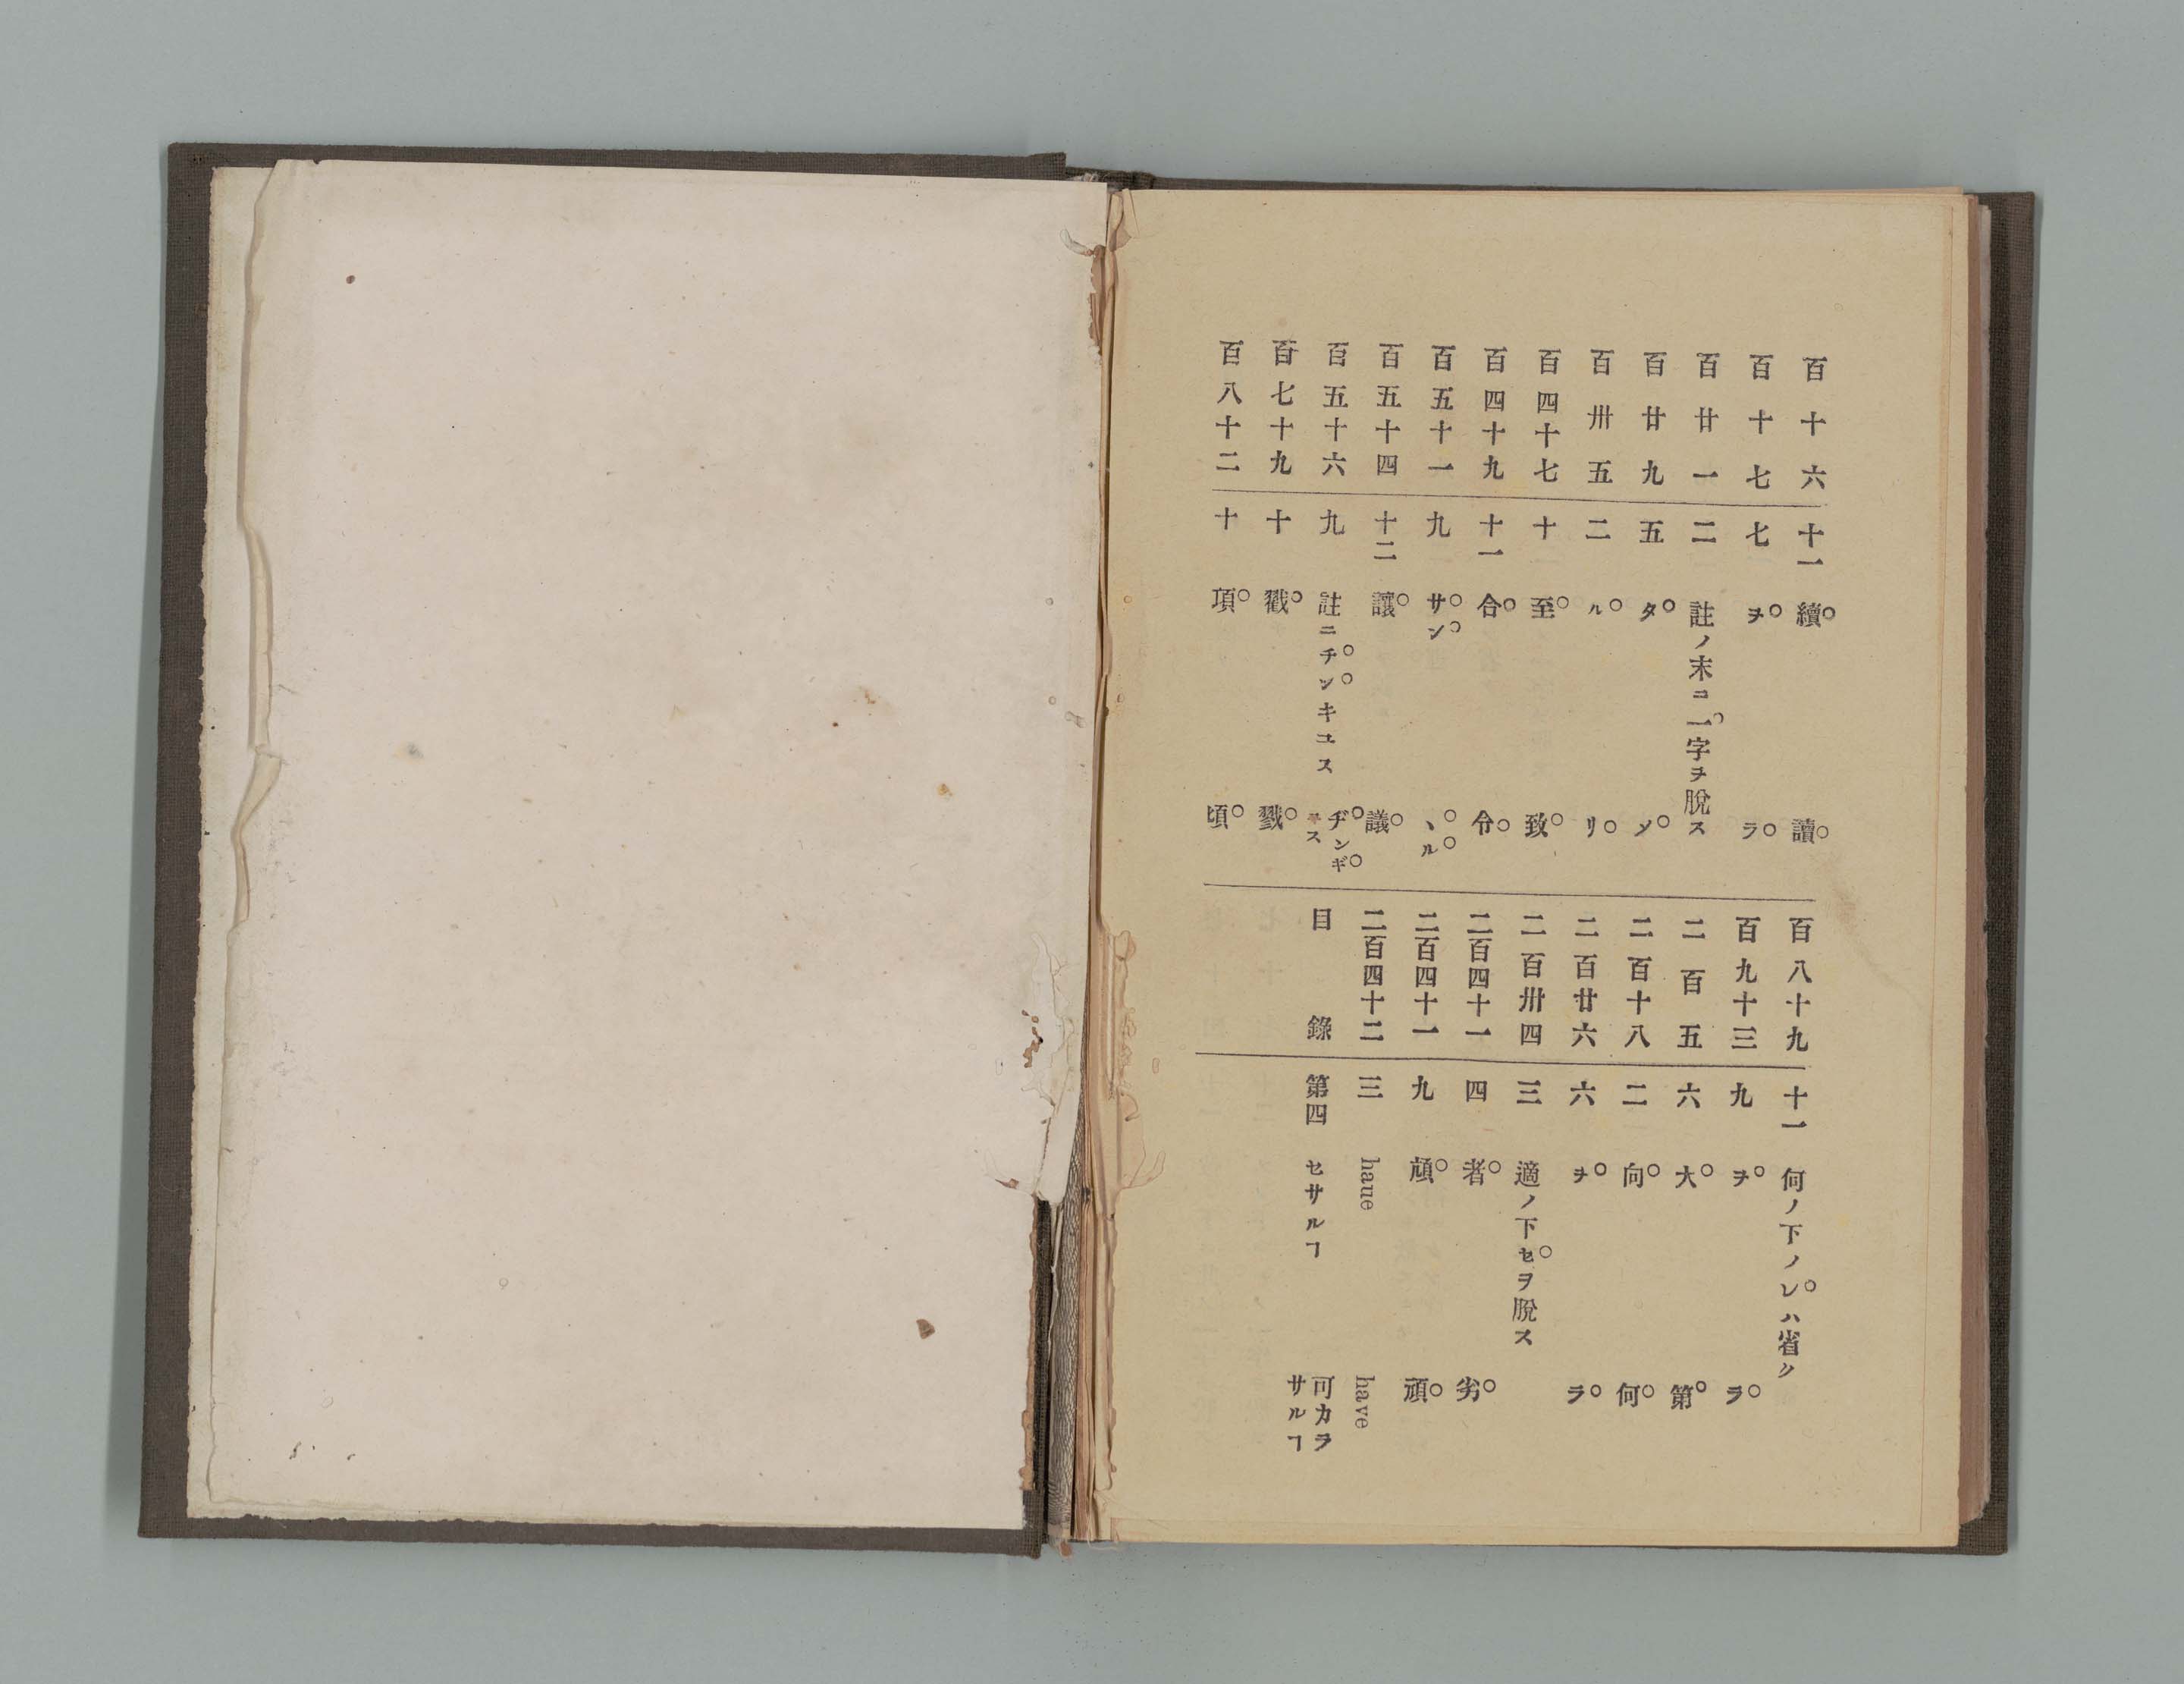 百十六 十一 續 讀
百十七 七 ヲ ラ
百廿一 二 註ノ末コ一字ヲ脫ス
百廿九 五 タ メ
百卅五 二 ル リ
百四十七 十 至 致
百四十九 十一 合 令
百五十一 九 サン 、ル
百五十四 十二 讓 議
百五十六 九 註ニチンキユス ヂンギユス
百七十九 十 戳 戮
百八十二 十 項 頃
百八十九 十一 何ノ下ノレハ省ク
百九十三 九 ヲ ラ
二百五 六 大 第
二百十八 二 向 何
二百廿六 六 ヲ ラ
二百卅四 三 適ノ下セヲ脫ス
二百四十一 四 者 劣
二百四十一 九 頏 頑
二百四十二 三 haue have
目錄 第四 セサルヿ 可カラサルヿ